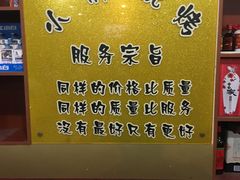 小 烤
服务宗旨
同样的价格比质量
同样的质量比服务
没有最好只有更好